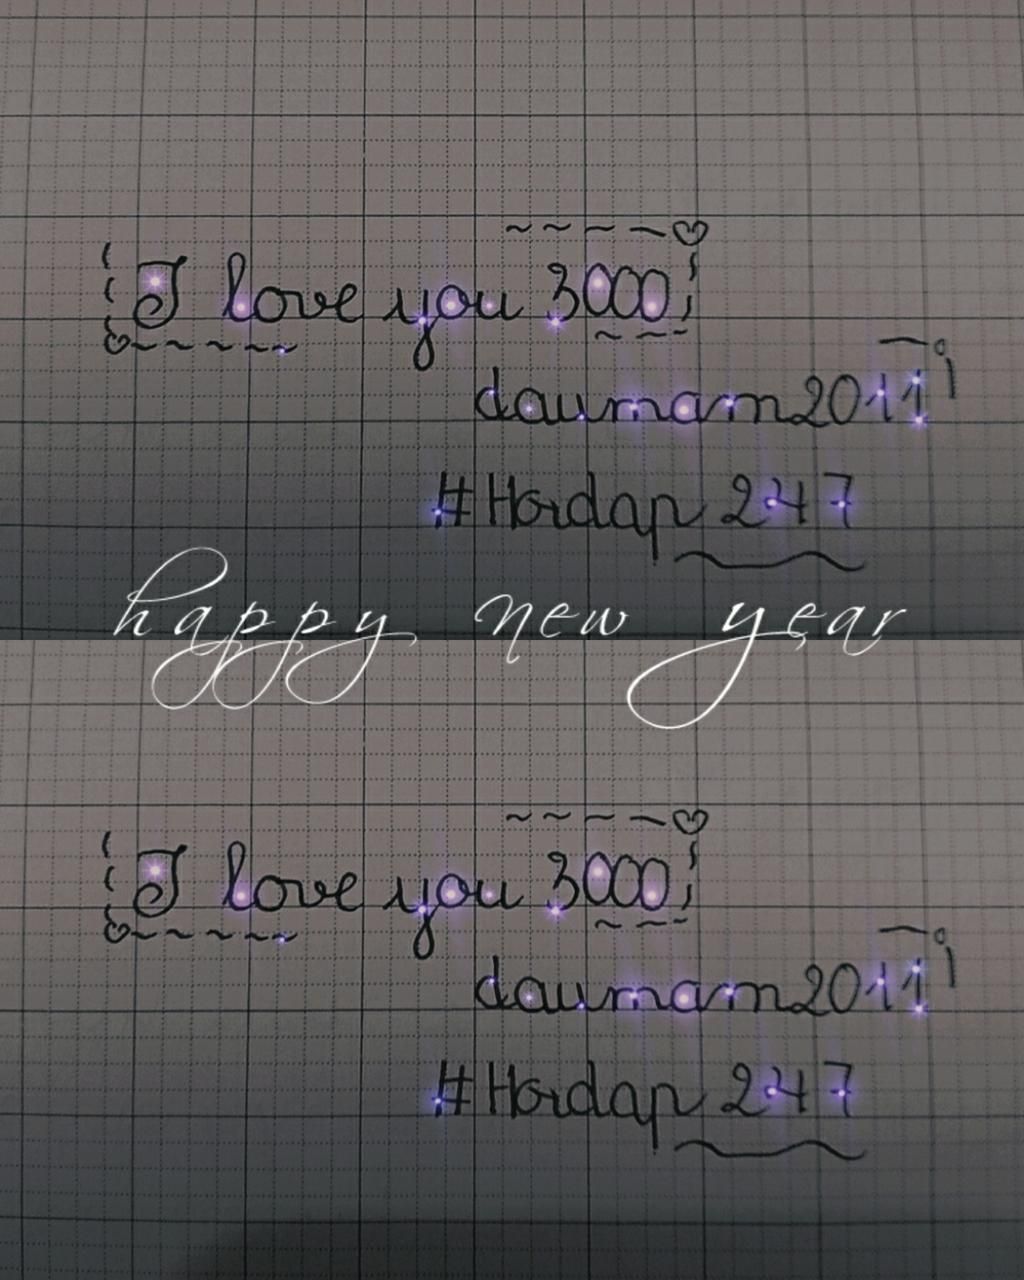 I love you 3000
daumam2011
#Hordap 247
happy new year
I love you 3000
daumam2011
#Hordap 247